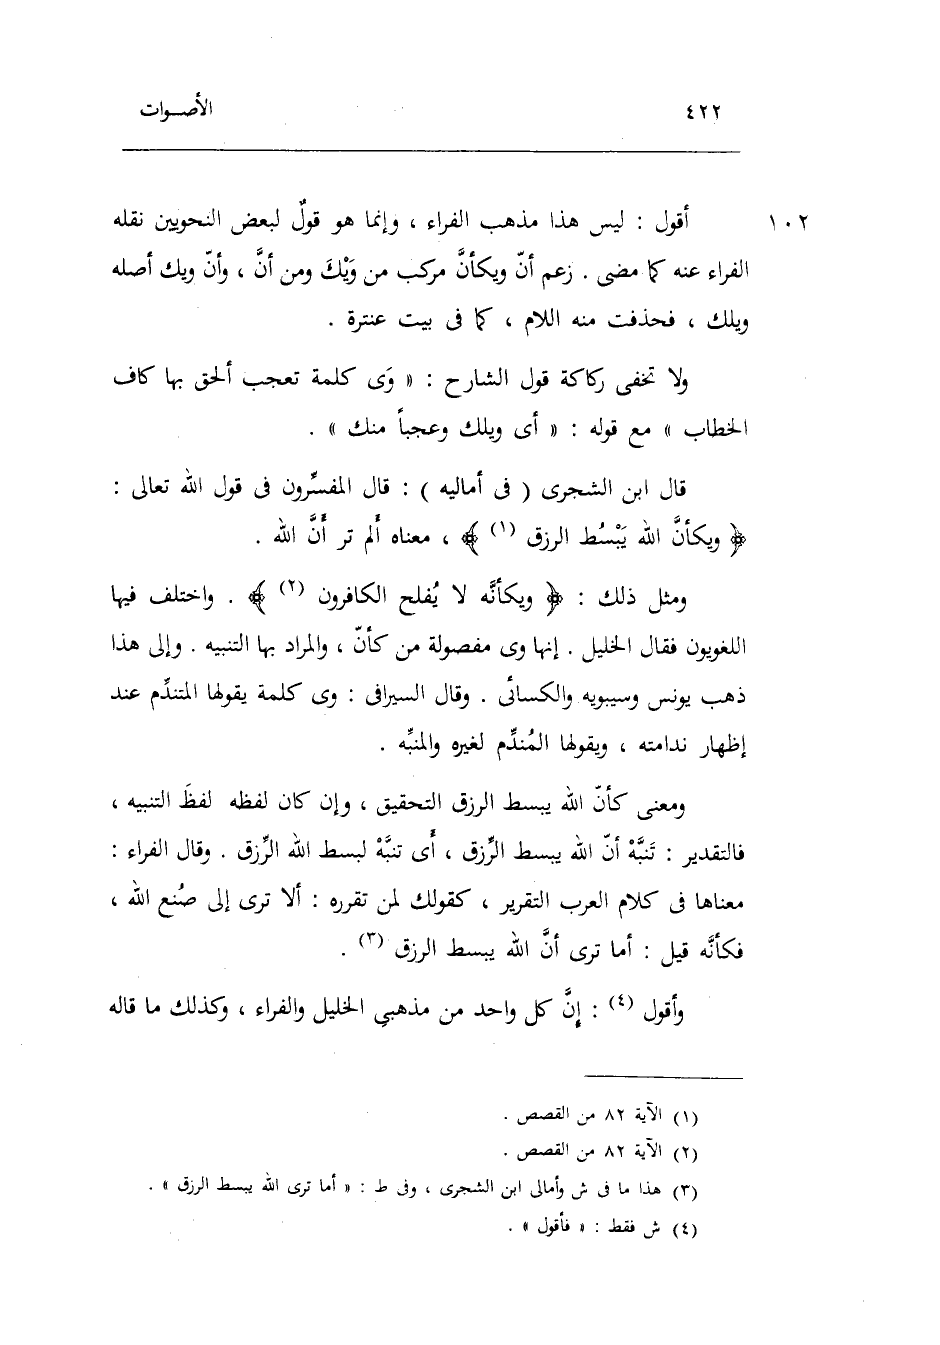 ٤٢٢ الأصـوات
١٠٢ أقول : ليس هذا مذهب الفراء ، وإنما هو قولٌ لبعض النحويين نقله
الفراء عنه كما مضى . زعم أنّ ويكأنَّ مركب من وَيْكَ ومن أنَّ ، وأنّ ويك أصله
ويلك ، فحذفت منه اللام ، كما فى بيت عنترة .
ولا تخفى ركاكة قول الشارح : « وَى كلمة تعجب ألحق بها كاف
الخطاب » مع قوله : « أى ويلك وعجباً منك » .
قال ابن الشجرى ( فى أماليه ) : قال المفسِّرون فى قول الله تعالى :
﴿ ويكأنَّ الله يَبْسُط الرزق (١) ﴾ ، معناه ألم تر أَنَّ الله .
ومثل ذلك : ﴿ ويكأنَّه لا يُفلح الكافرون (٢) ﴾ . واختلف فيها
اللغويون فقال الخليل . إنها وى مفصولة من كأنّ ، والمراد بها التنبيه . وإلى هذا
ذهب يونس وسيبويه والكسائى . وقال السيرافى : وى كلمة يقولها المتندِّم عند
إظهار ندامته ، ويقولها المُندِّم لغيره والمنبِّه .
ومعنى كأنّ الله يبسط الرزق التحقيق ، وإن كان لفظه لفظَ التنبيه ،
فالتقدير : تَنبَّهْ أنّ الله يبسط الرِّزق ، أَى تنبَّهْ لبسط الله الرِّزق . وقال الفراء :
معناها فى كلام العرب التقرير ، كقولك لمن تقرره : ألا ترى إلى صُنع الله ،
فكأنَّه قيل : أما ترى أنَّ الله يبسط الرزق (٣) .
وأقول (٤) : إِنَّ كل واحد من مذهبى الخليل والفراء ، وكذلك ما قاله
(١) الآية ٨٢ من القصص .
(٢) الآية ٨٢ من القصص .
(٣) هذا ما فى ش وأمالى ابن الشجرى ، وفى ط : « أما ترى الله يبسط الرزق » .
(٤) ش فقط : « فأقول » .